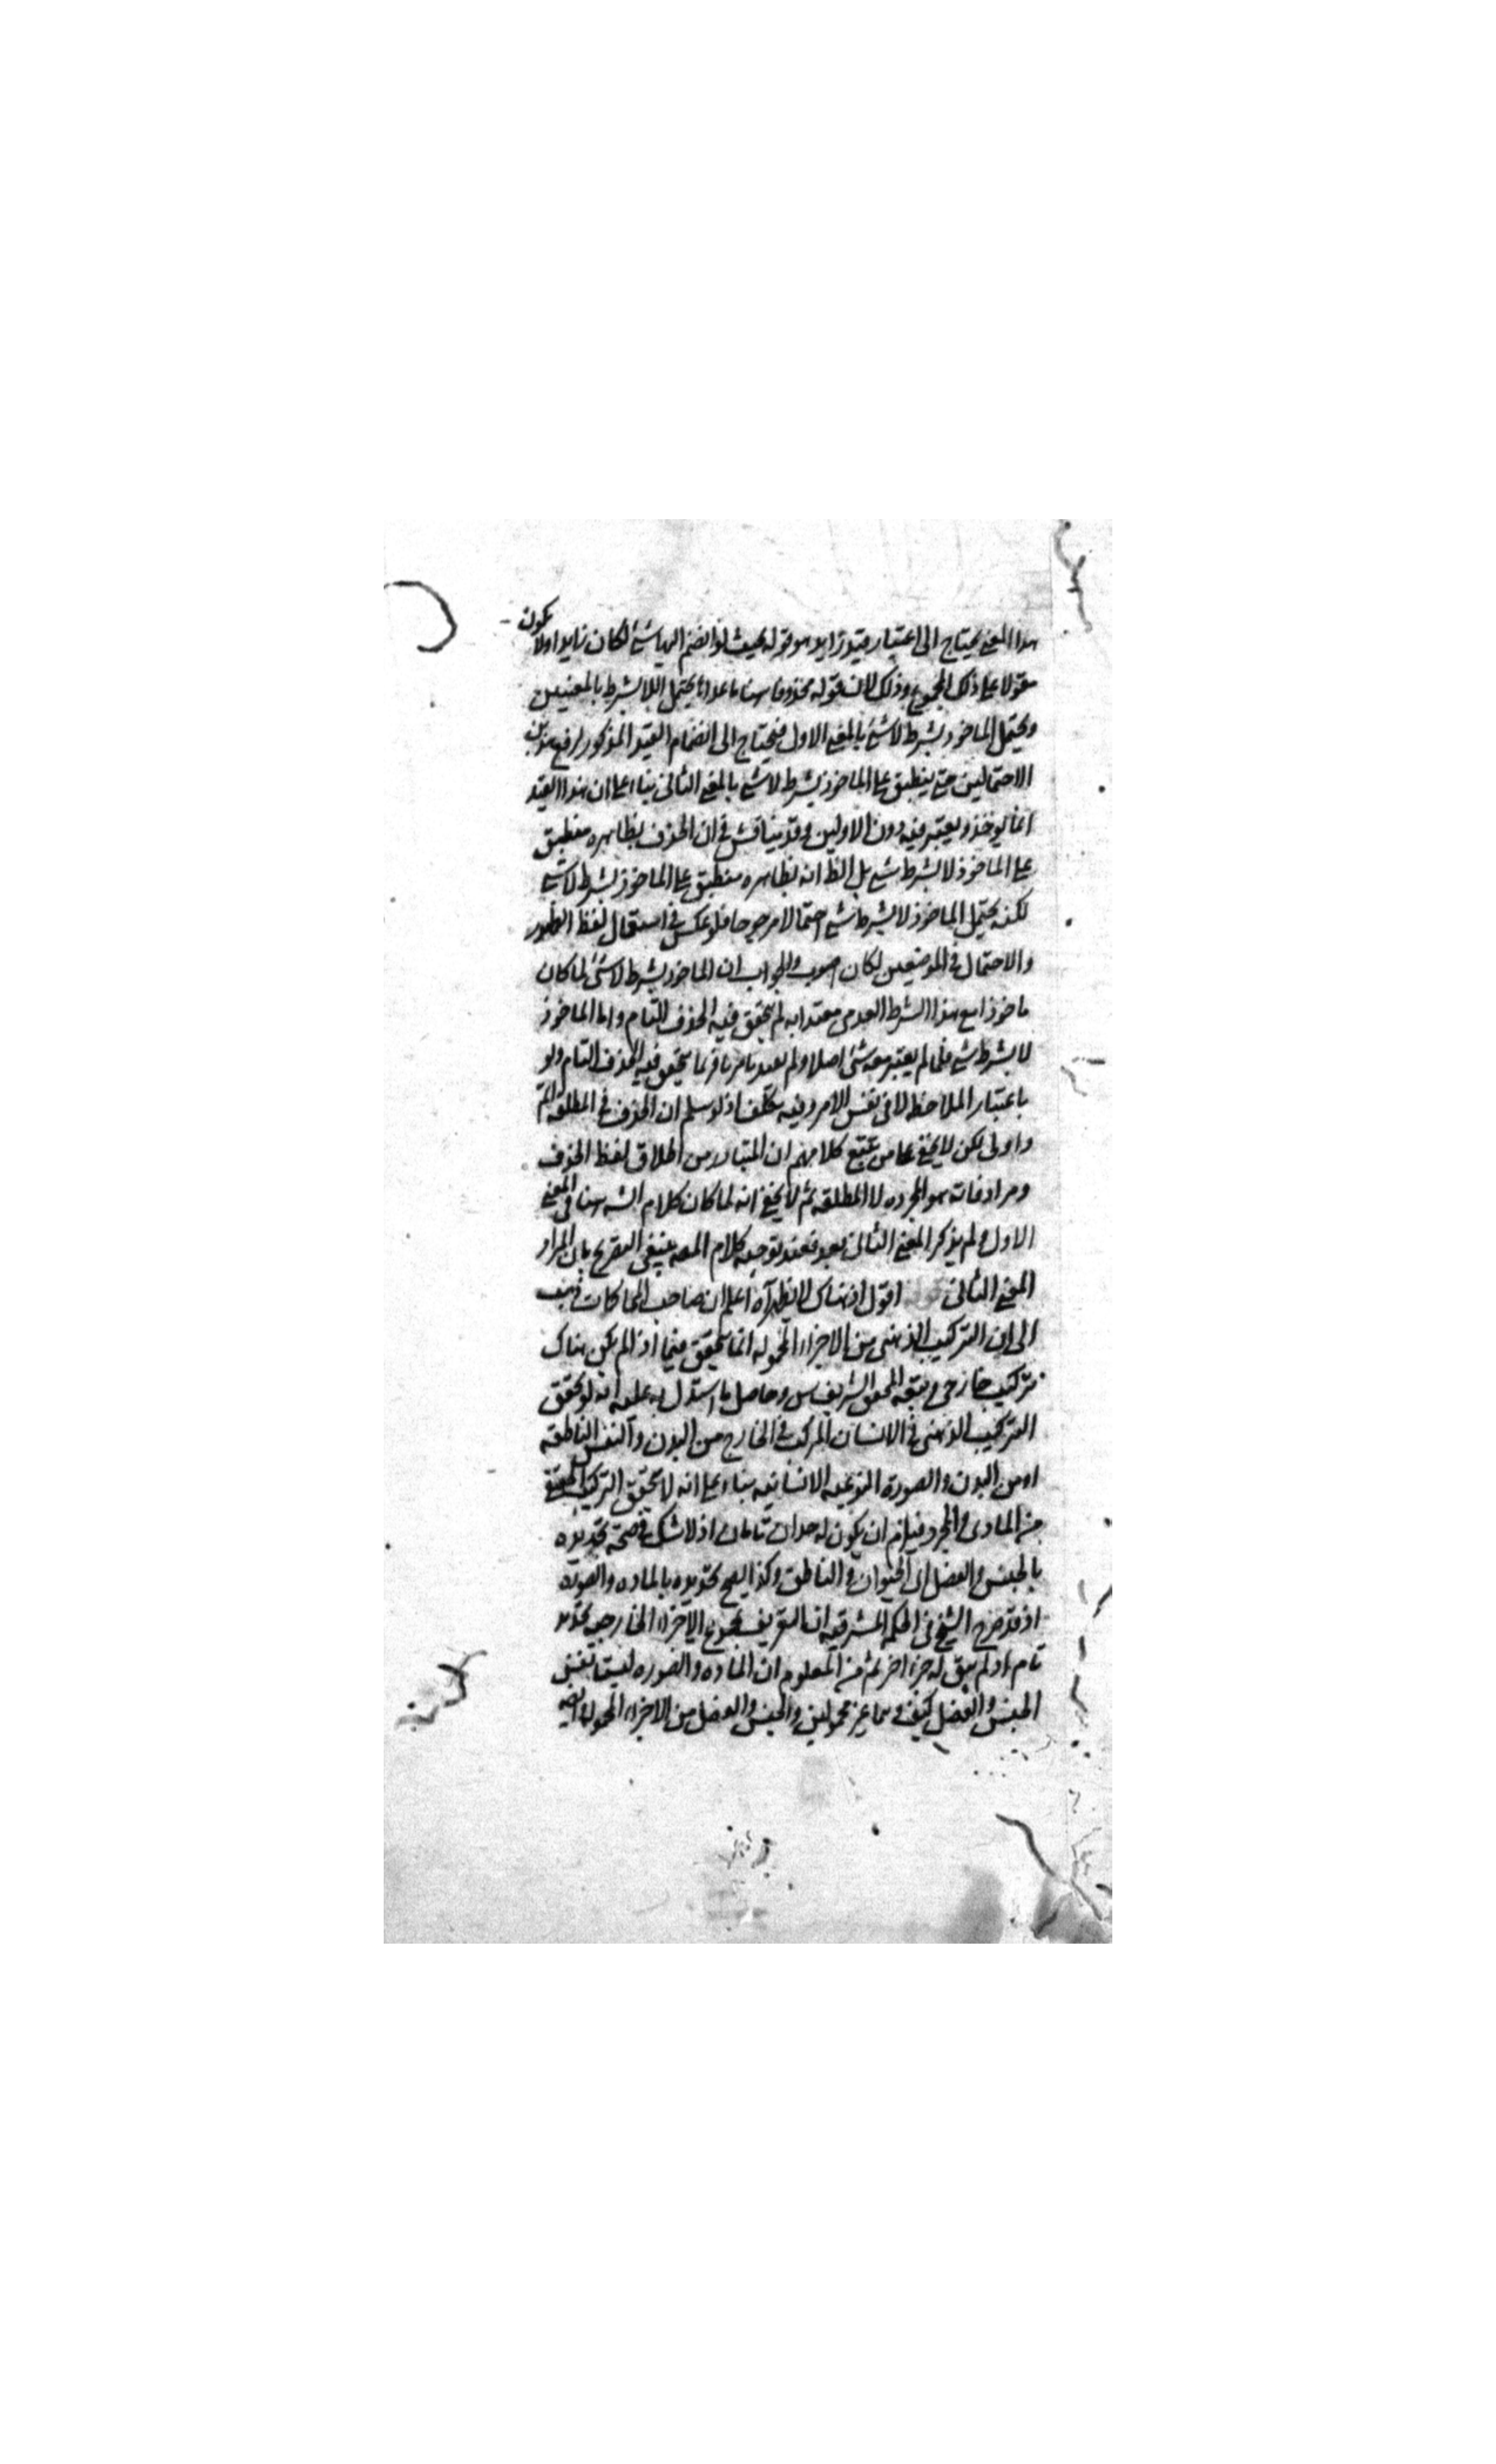 هذا المعنى يحتاج الى اعتبار قيد زايد هو قوله بحيث لو انضم اليها شئ لكان زايدا ولا يكون
مقولا على ذلك المجموع وذلك لان قوله محذوفا عنها ما عداها يحتمل اللابشرط بالمعنيين
ويحتمل الماخوذ بشرط لا شئ بالمعنى الاول فيحتاج الى انضمام القيد المذكور لرفع هذين
الاحتمالين حتى ينطبق على الماخوذ بشرط لا شئ بالمعنى الثانى بناء على ان هذا القيد
انما يوخذ ويعتبر فيه دون الاولين وقد يناقش فى ان الحذف بظاهره منطبق
على الماخوذ لا بشرط شئ بل الظ انه بظاهره منطبق على الماخوذ بشرط لا شئ
لكنه يحتمل الماخوذ لا بشرط شئ احتمالا مرجوحا فلو عكس فى استعمال لفظ الظهور
والاحتمال فى الموضعين لكان اصوب والجواب ان الماخوذ بشرط لا شئ لما كان
ماخوذا مع هذا الشرط العدمى معتدا به لم يتحقق فيه الحذف التام واما الماخوذ
لا بشرط شئ فلما لم يعتبر معه شئ اصلا ولم يقيد بامر ما فربما يتحقق فيه الحذف التام ولو
باعتبار الملاحظة لا فى نفس الامر وفيه تكلف اذ لو سلم ان الحذف فى المطلقة اتم
واولى لكن لا يخفى على من تتبع كلامهم ان المتبادر من اطلاق لفظ الحذف
ومرادفاته هو المجرده لا المطلقه ثم لا يخفى انه لما كان كلام الشه هنا فى المعنى
الاول ولم يذكر المعنى الثانى بعد فعند توجيه كلام المصه ينبغى التصريح بان المراد
المعنى الثانى قوله اقول اذ هناك لا يظهر آه اعلم ان صاحب المحاكمات ذهب
الى ان التركيب الذهنى من الاجزاء المحموله انما يتحقق فيما اذا لم يكن هناك
تركيب خارجى وتبعه المحقق الشريف س وحاصل ما استدل به عليه انه لو تحقق
التركيب الذهنى فى الانسان المركب فى الخارج من البدن والنفس الناطقه
او من البدن والصورة النوعيه الانسانيه بناء على انه لا تحقق التركيب الحقيقى
من المادى والمجرد فيلزم ان يكون له حدان تامان اذ لا شك فى صحة تحديده
بالجنس والفصل اى الحيوان والناطق وكذا يصح تحديده بالماده والصوره
اذ قد صرح الشيخ فى الحكمه المشرقيه ان التعريف بمجموع الاجزاء الخارجيه تحديد
تام اذ لم يبق له جزء اخر ثم من المعلوم ان الماده والصوره ليستا نفس
الجنس والفصل كيف وهما غير محمولين والجنس والفصل من الاجزاء المحموله